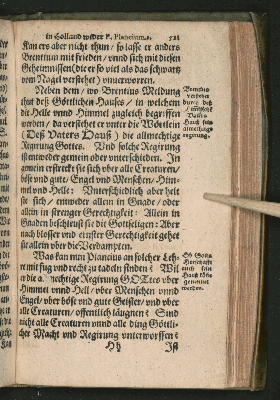 in Holland wider P. Plancium. 521
Kan ers aber nicht thun / so lasse er anders
Brentium mit frieden / vnnd sich mit diesen
Geheimnissen (die er so viel als das schwartz
vom Nagel verstehet) vnuerworren.
Neben dem / wo Brentius Meldung
thut deß Göttlichen Hauses / in welchem
die Helle vnnd Himmel zugleich begriffen
werden / da verstehet er vnter die Wörtlein
(Deß Vaters Hauß) die allmechtige
Regirung Gottes. Vnd solche Regirung
ist entweder gemein oder vnterschieden. In
gemein erstreckt sie sich vber alle Creaturen /
böse vnd gute / Engel vnd Menschen / Him-
mel vnd Helle: Vnterschiedlich aber helt
sie sich / entweder allein in Gnade / oder
allein in strenger Gerechtigkeit: Allein in
Gnaden beschleust sie die Gottseligen: Aber
nach blosser vnd ernster Gerechtigkeit gehet
sie allein vber die Verdampten.
Was kan nun Plancius an solcher Leh-
re mit fug vnd recht zu tadeln finden? Wil
er die allmechtige Regirung GOttes vber
Himmel vnnd Hell / vber Menschen vnnd
Engel / vber böse vnd gute Geister / vnd vber
alle Creaturen / offentlich läugnen? Sind
nicht alle Creaturen vnnd alle ding Göttli-
cher Macht vnd Regirung vnterworffen?
Hh Ist
Brentius
verstehet
durch deß
Himlische
Vaters
Hauß sein
allmechtige
regirung.
Ob Gottes
Herrschafft
auch sein
Hauß köne
genennet
werden.